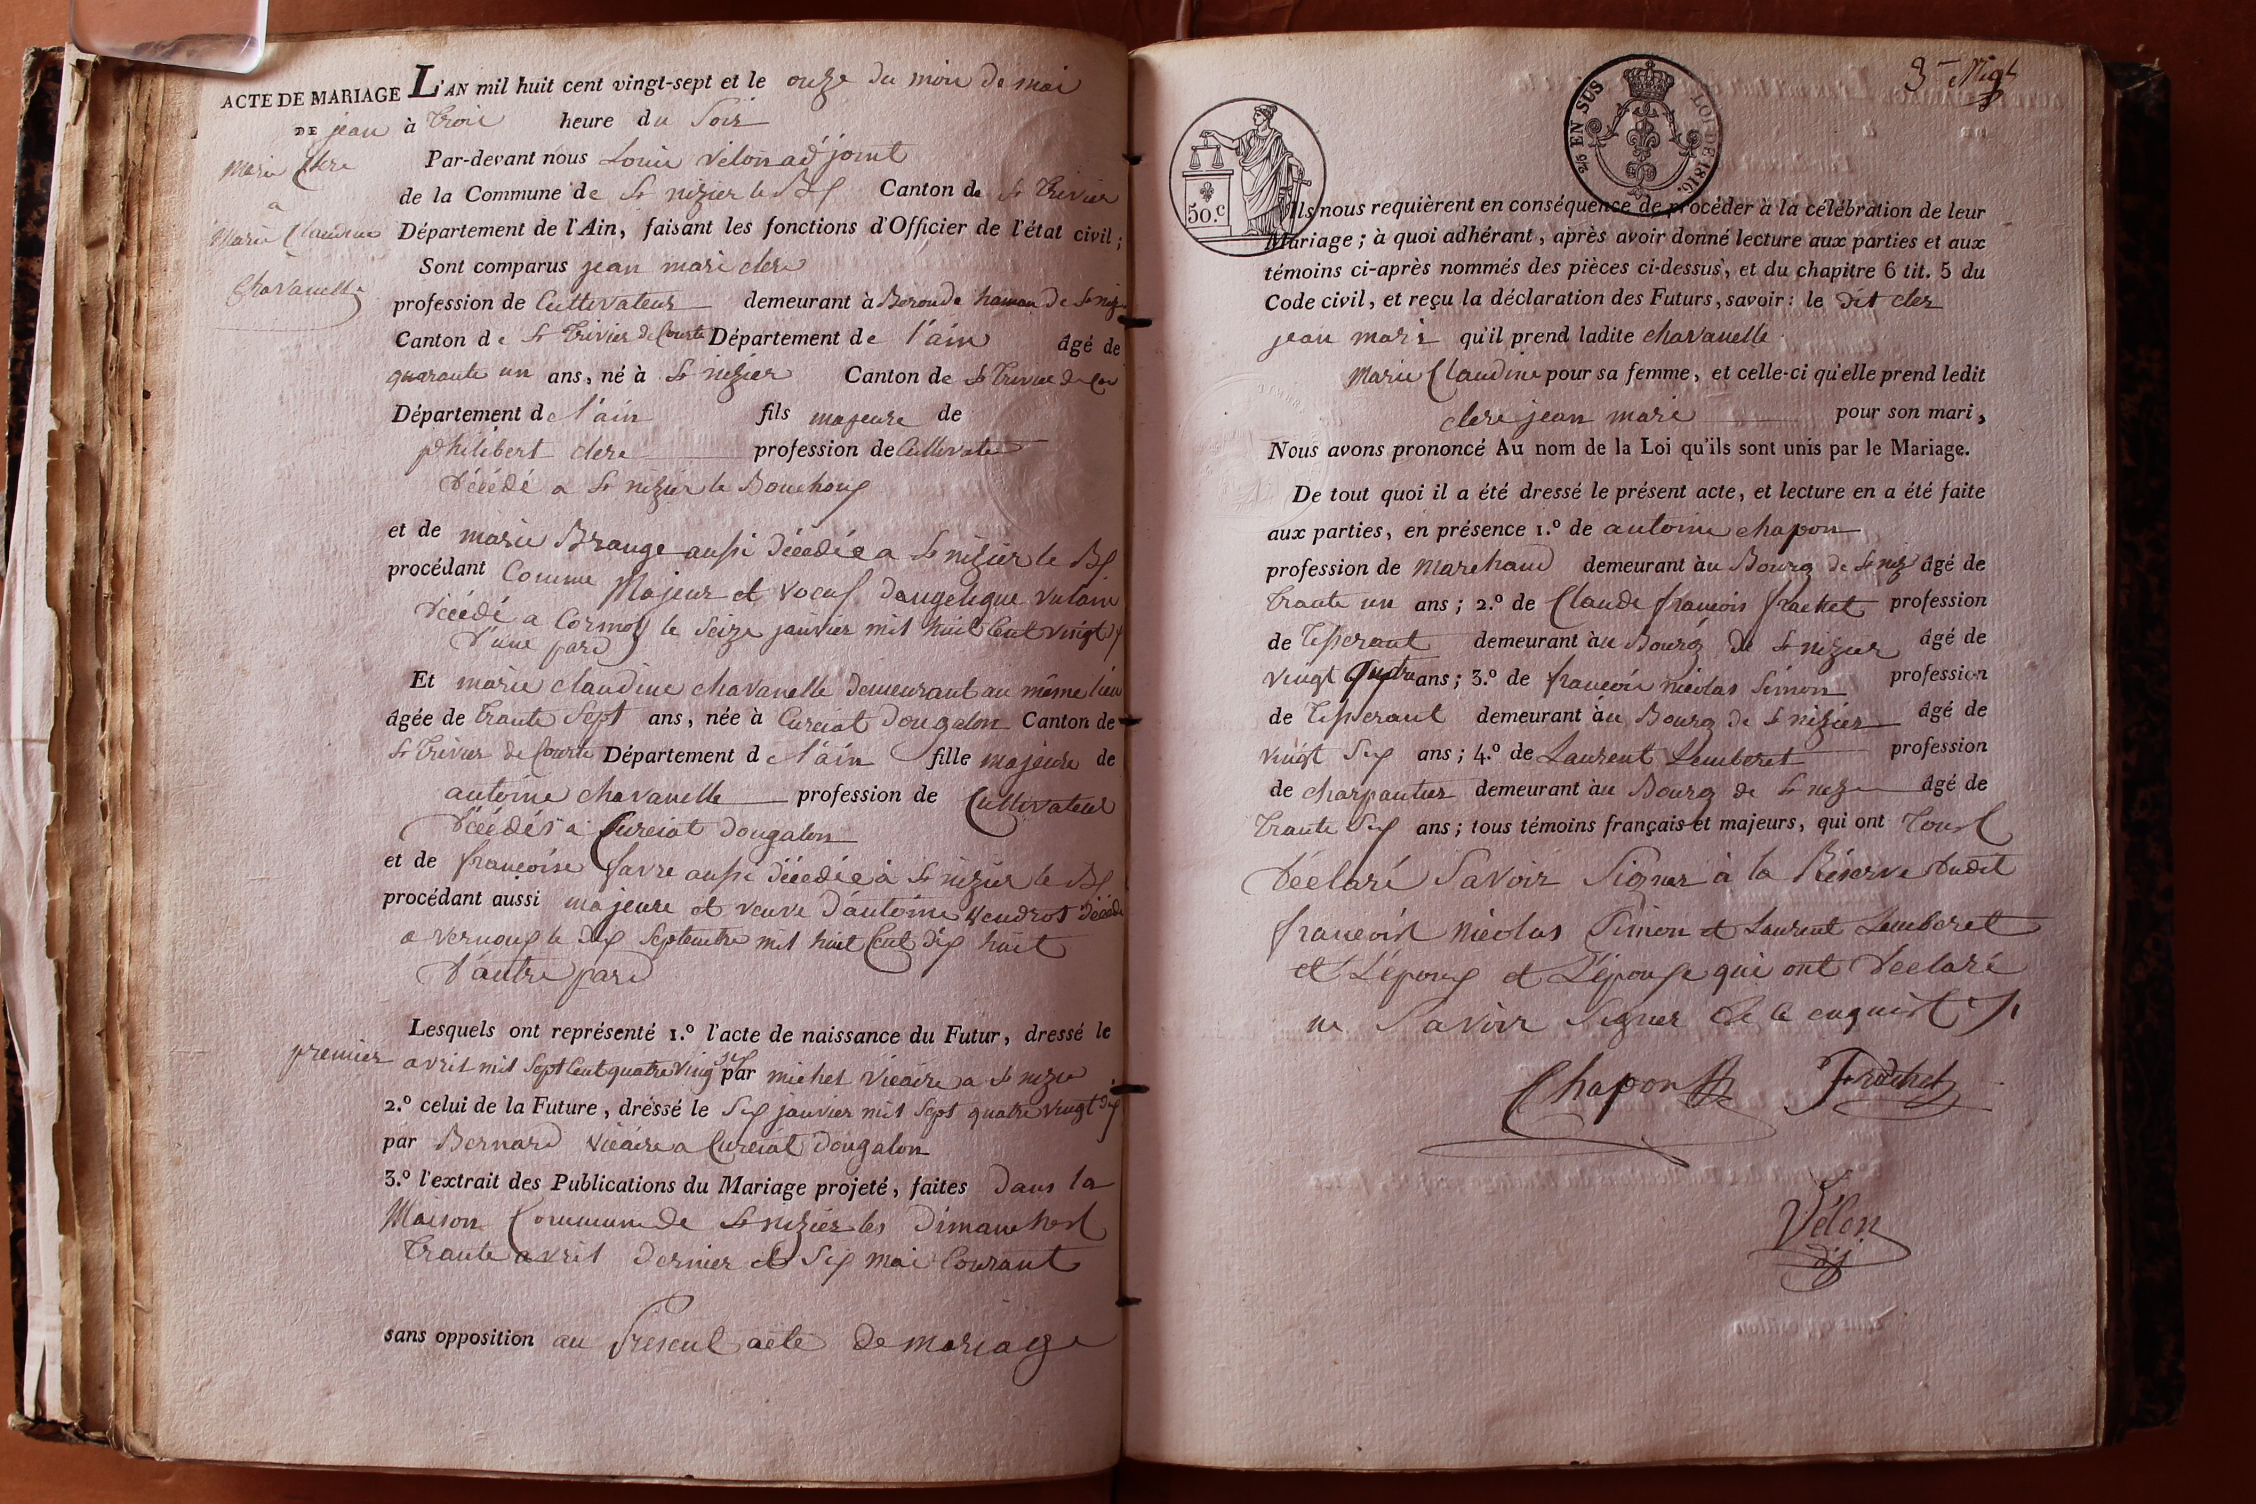 ACTE DE MARIAGE L'AN mil huit cent vingt-sept et le onze du mois de mai
DE jean à trois heure du Soir
marie Clere
à
Marie Claudine
Chavanelle
Par-devant nous Louis vélon adjoint
de la Commune de St nizier le Bx Canton de St Trivier
Département de l'Ain, faisant les fonctions d'Officier de l'état civil;
Sont comparus jean marie clere
profession de Cultivateur demeurant à hameau de St niz
Canton de St Trivier de Courte Département de l'ain âgé de
quarante un ans, né à St nizier Canton de St Trivier de Cou
Département de l'ain fils majeure de
philibert clere profession de Cultivate
Décédé a St nizier le Bouchoux
et de marie Brange aussi décedée a St nizier le Bx
procédant Comme Majeur et voeuf dangelique vulain
Décédé a Cormoz le Seize janvier mil huit Cent vingt
d'une pard
Et marie claudine chavanelle demeurant au même lieu
âgée de trante Sept ans, née à Curciat dongalon Canton de
St Trivier de Courte Département de l'ain fille majeure de
antoine chavanelle profession de Cultivateur
Décédés a Curciat dongalon
et de françoise favre aussi décedée à St nizier le Bx
procédant aussi majeure et veuve d'antoine vendrot décédé
a vernoux le dix Septembre mil huit Cent dix huit
d'autre pard
Lesquels ont représenté 1.º l'acte de naissance du Futur, dressé le
premier avril mil Sept Cent quatre ving six par michel vicaire a St nizie
2.º celui de la Future, dressé le Six janvier mil Sept quatre vingt dix
par Bernard vicaire a Curciat dongalon
3.º l'extrait des Publications du Mariage projeté, faites dans la
Maison Commune de St nizier les dimanches
trante avril dernier et Six mai Courant
sans opposition au Present acte de mariage
50.c
2/6 EN SUS LOI DE 1816.
Ils nous requièrent en conséquence de procéder à la célébration de leur
Mariage; à quoi adhérant, après avoir donné lecture aux parties et aux
témoins ci-après nommés des pièces ci-dessus, et du chapitre 6 tit. 5 du
Code civil, et reçu la déclaration des Futurs, savoir: le dit cler
jean mari qu'il prend ladite chavanelle
Marie Claudine pour sa femme, et celle-ci qu'elle prend ledit
clere jean marie pour son mari,
Nous avons prononcé Au nom de la Loi qu'ils sont unis par le Mariage.
De tout quoi il a été dressé le présent acte, et lecture en a été faite
aux parties, en présence 1.º de antoine chapon
profession de Marchand demeurant àu Bourg de St niz âgé de
trante un ans; 2.º de Claude françois frachet profession
de tisserant demeurant àu Bourg de St nizier âgé de
vingt quatre ans; 3.º de françois nicolas Simon profession
de tisserant demeurant àu Bourg de St nizier âgé de
vingt Six ans; 4.º de Laurent Lemberet profession
de charpantier demeurant àu Bourg de St nizie âgé de
trante Six ans; tous témoins français et majeurs, qui ont tous
Déclaré Savoir Signer à la Réserve dudit
françois nicolas Simon et Laurent Lemberet
et l'époux et l'épouse qui ont declaré
ne Savoir Signer de ce enquist
Chapon Frachet
Vélon
adj